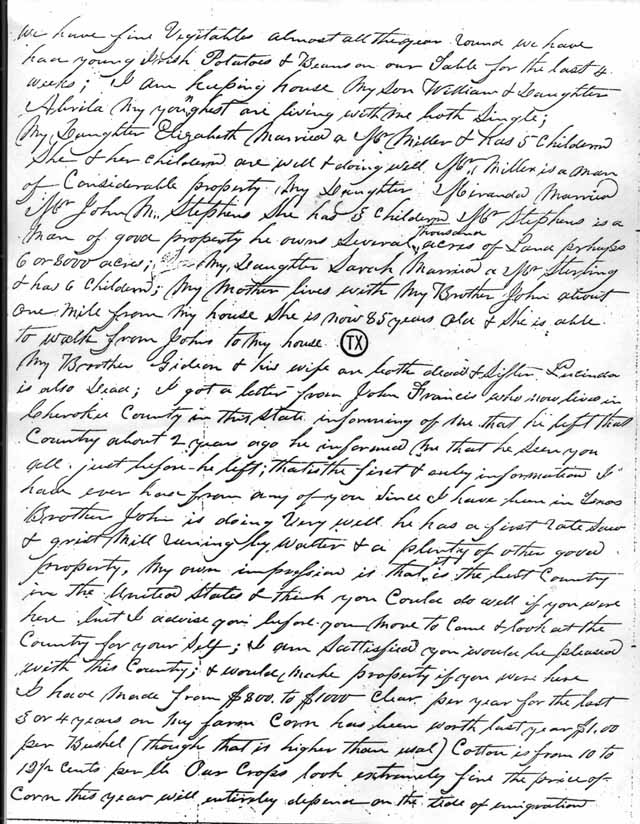 we have fine Vegitables almost all the year round we have
had young Irish Potatoes & Beans on our Table for the last 4
weeks; I am keeping house My Son William & Daughter
My younghest are living with me both Single;
My Daughter Elizabeth Married a Mr Miller & has 5 Childern
She & her childern are well & doing well Mr. Miller is a man
of Considerable property, My Daughter Miranda Married
Mr John M. Stephens She has 3 Childern Mr Stephens is a
man of good property he owns Several Thousand acres of Land perhaps
6 or 8000 acres; My Daughter Sarah Married a Mr Sterling
& has 6 Childern; My Mother lives with My Brother John about
one Mile from my house She is now 85 years old & She is able
to walk from Johns to my house. TX
My Brother Gideon & his wife are both dead & Sister Lucinda
is also Dead; I got a letter from John Francis who now lives in
Cherokee County in this State informing of me that he left that
Country about 2 years ago he informed me that he seen you
all just before he left; that is the first & only information I
have ever had from any of you Since I have been in Texas
Brother John is doing Very well he has a first rate Saw
& grist Mill runing by Watter & a plenty of other good
property, My own impression is that it is the best Country
in the United States & think you Could do well if you were
here but I advise you before you move to Come & look at the
Country for your Self; I am Sattisfied you would be pleased
with this County; & would make property if you were here
I have made from $800. to $1000 Clear per year for the last
3 or 4 years on My farm Corn has been worth last year $1.00
per Bushel (though that is higher than usal) Cotton is from 10 to
12½ Cents per lb Our Crops look extremely fine the price of
Corn this year will entirely depend on the tide of emigration